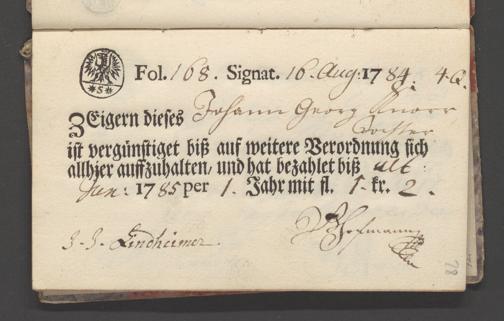 *S*
Fol. 168. Signat. 16. Aug: 1784. 4. Q.
Zeigern dieses Johann Georg Knorr,
Tochter
ist vergünstiget biß auf weitere Verordnung sich
allhier auffzuhalten, und hat bezahlet biß ult:
Jun: 1785 per 1. Jahr mit fl. 1. kr. 2.
J. J. Lindheimer. Hofmann
78